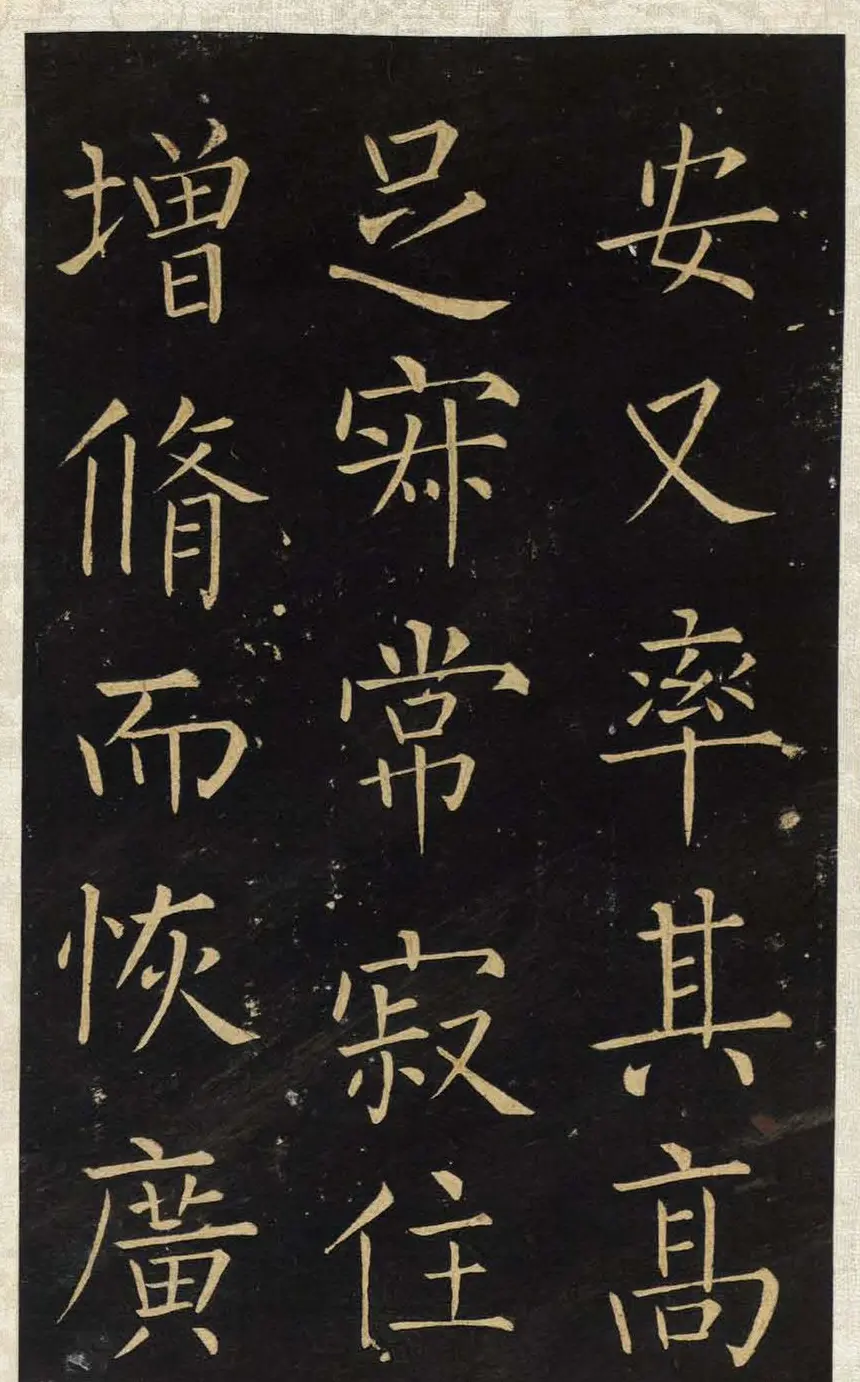 安又率其髙
足寂常寂住
增脩而恢廣